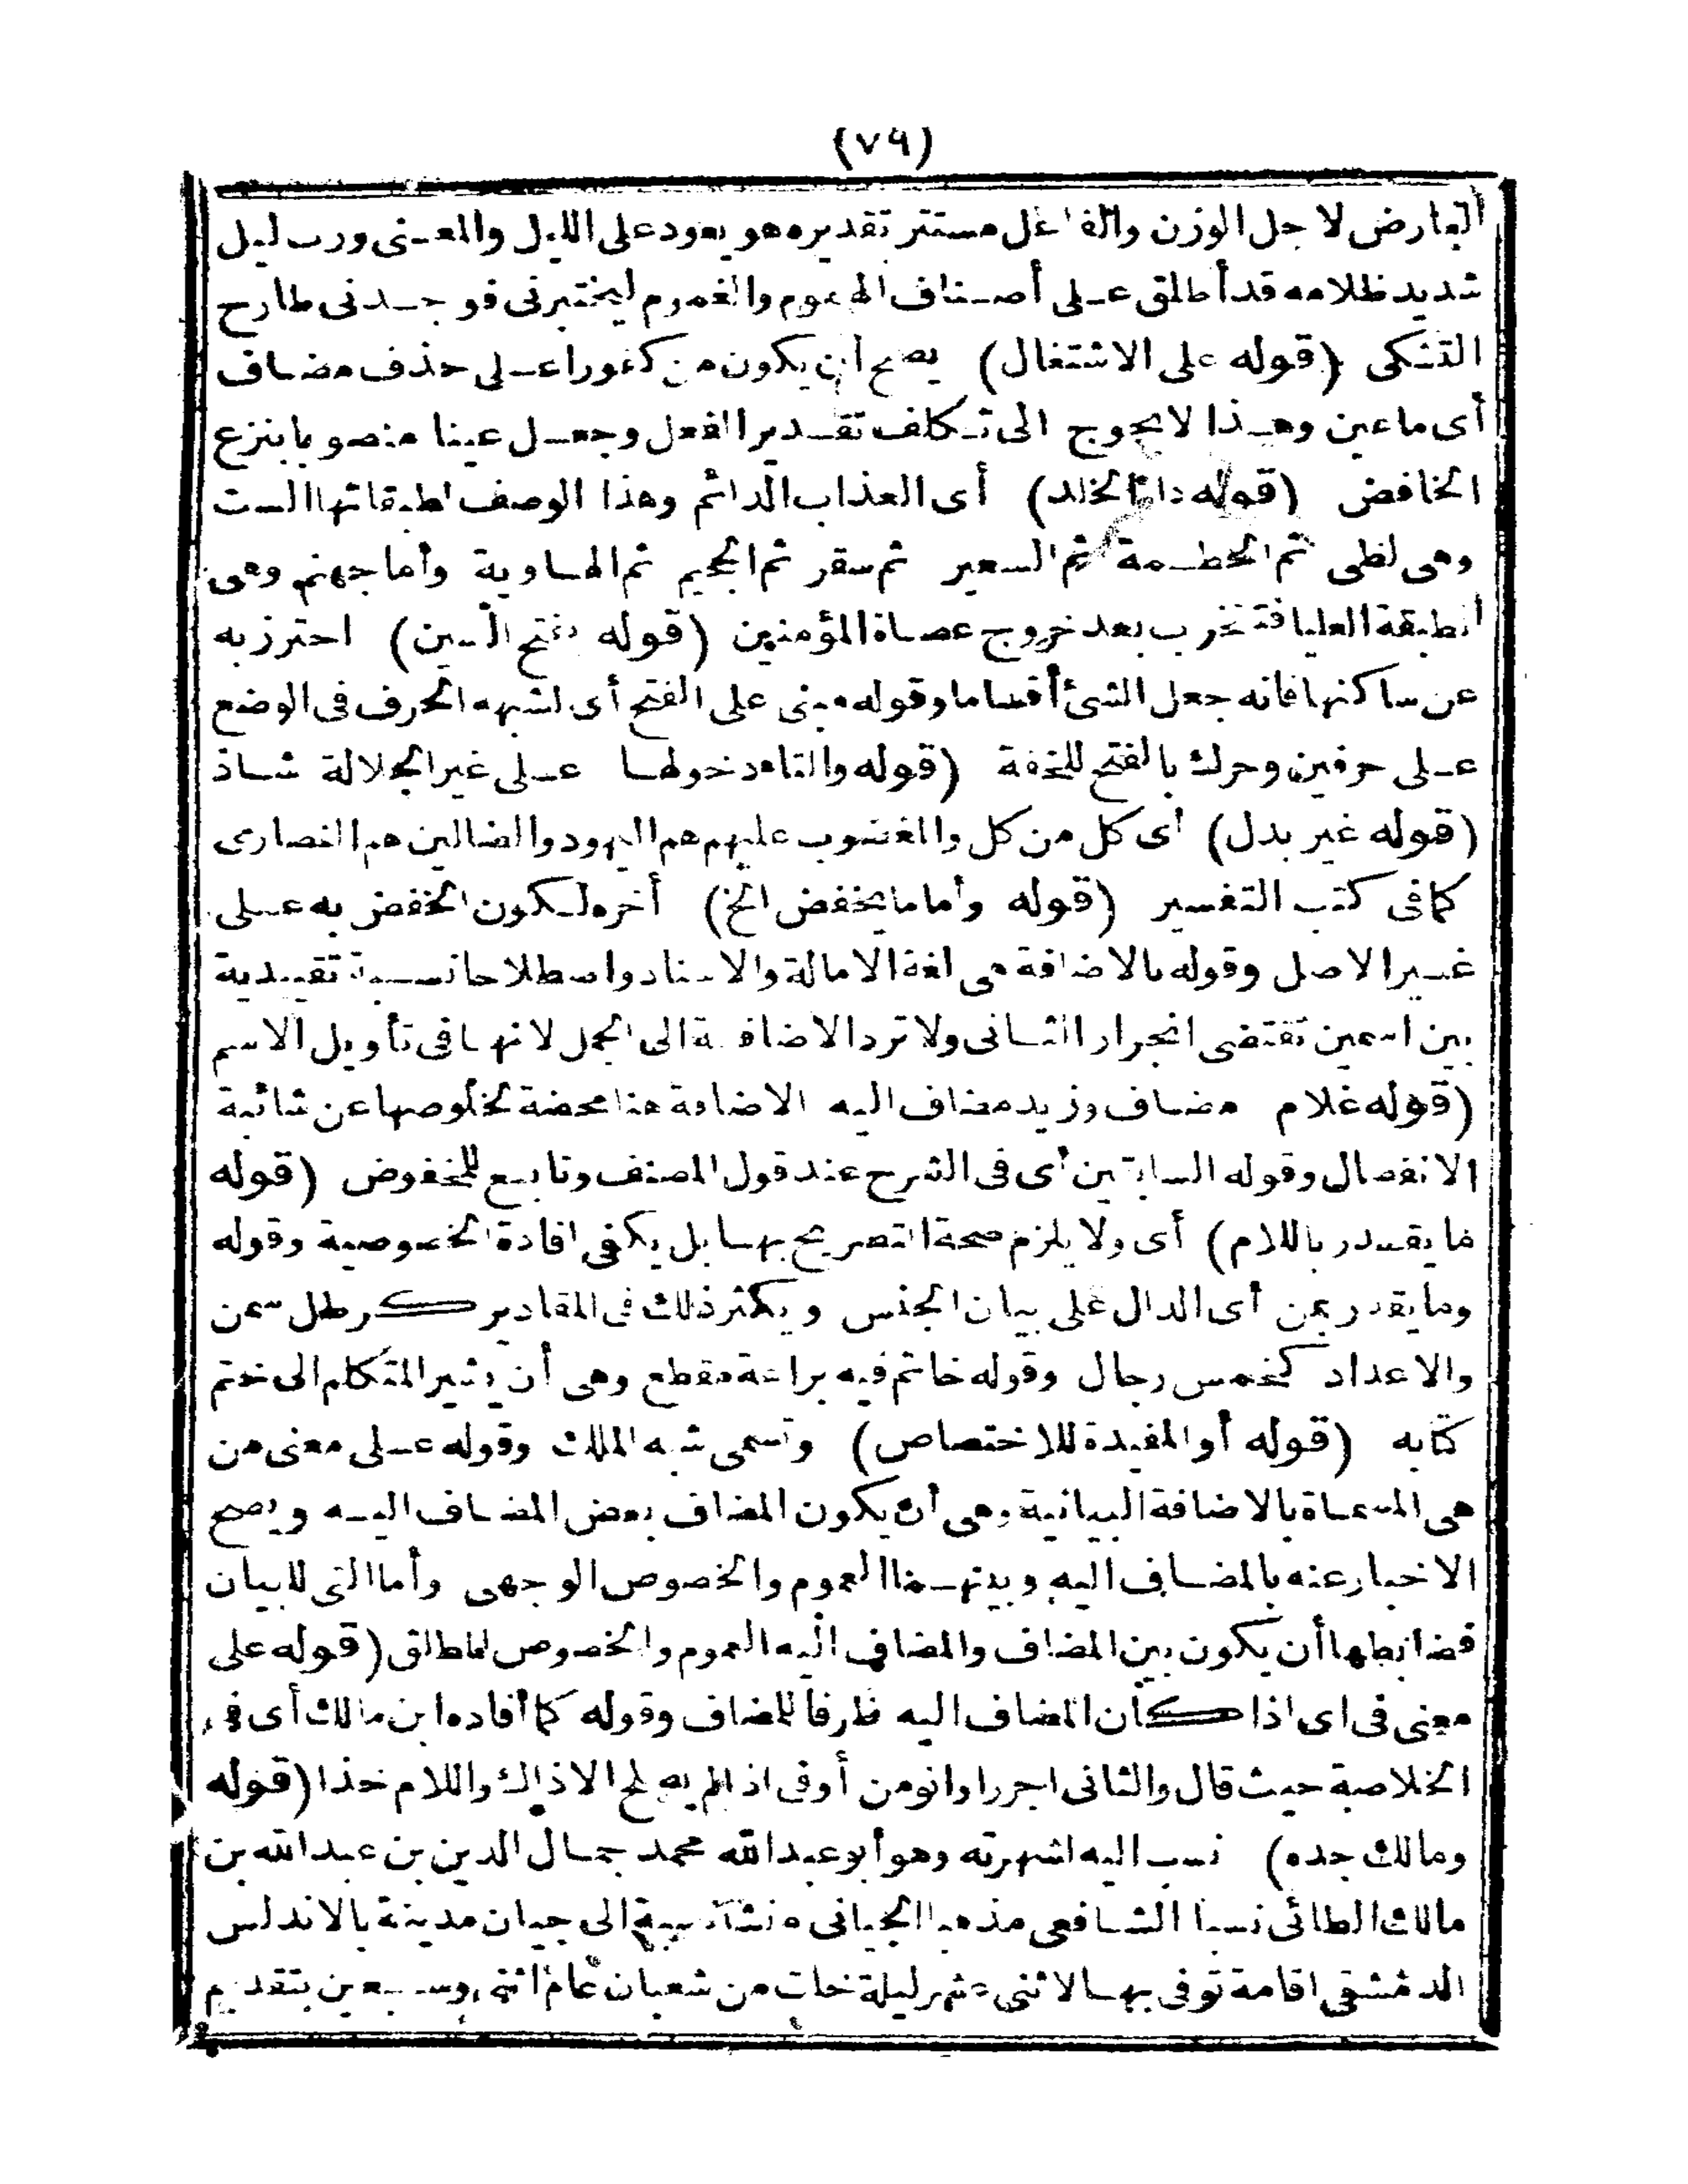 (٧٩)
العارض لاجل الوزن والفاعل مستتر تقديره هو يعود على الليل والمعنى ورب ليل
شديد ظلامه قد أطلق على أصناف الهموم والغموم ليختبرنى فوجدنى طارح
التشكى (قوله على الاشتغال) يصح أن يكون من كفورا على حذف مضاف
أى ما عين وهذا لا يحوج الى تكلف تقدير الفعل وجعل عينا منصوبا بنزع
الخافض (قوله دار الخلد) أى العذاب الدائم وهذا الوصف لطبقاتها الست
وهى لظى ثم الحطمة ثم السعير ثم سقر ثم الجحيم ثم الهاوية وأما جهنم وهى
الطبقة العليا فتخرب بعد خروج عصاة المؤمنين (قوله بفتح السين) احترز به
عن ساكنها فانه جعل الشئ أقساما وقوله مبنى على الفتح أى لشبهه الحرف فى الوضع
على حرفين وحرك بالفتح للخفة (قوله والتاء دخولها على غير الجلالة شاذ
(قوله غير بدل) أى كل من كل والمغضوب عليهم هم اليهود والضالين هم النصارى
كما فى كتب التفسير (قوله وأما ما يخفض الخ) أخره لكون الخفض به على
غير الاصل وقوله بالاضافة هى لغة الامالة والاسناد واصطلاحا نسبة تقييدية
بين اسمين تقتضى انجرار الثانى ولا ترد الاضافة الى الجمل لانها فى تأويل الاسم
(قوله غلام مضاف وزيد مضاف اليه الاضافة هنا محضة لخلوصها عن شائبة
الانفصال وقوله السابقين أى فى الشرح عند قول المصنف وتابع للمخفوض (قوله
ما يقدر باللام) أى ولا يلزم صحة التصريح بها بل يكفى افادة الخصوصية وقوله
وما يقدر بمن أى الدال على بيان الجنس ويكثر ذلك فى المقادير كرطل سمن
والاعداد كخمس رجال وقوله خاتم فيه براعة مقطع وهى أن يشير المتكلم الى ختم
كتابه (قوله أو المفيدة للاختصاص) وتسمى شبه الملك وقوله على معنى من
هى المسماة بالاضافة البيانية وهى أن يكون المضاف بعض المضاف اليه ويصح
الاخبار عنه بالمضاف اليه وبينهما العموم والخصوص الوجهى وأما التى للبيان
فضابطها أن يكون بين المضاف والمضاف اليه العموم والخصوص المطلق (قوله على
معنى فى اى اذا كان المضاف اليه ظرفا للمضاف وقوله كما أفاده ابن مالك أى فى
الخلاصة حيث قال والثانى اجرر وانو من أو فى اذا لم يصلح الا ذاك واللام خذا (قوله
ومالك جده) نسب اليه لشهرته وهو أبو عبد الله محمد جمال الدين بن عبد الله بن
مالك الطائى نسبا الشافعى مذهبا الجيانى منشأ نسبة الى جيان مدينة بالاندلس
الدمشقى اقامة توفى بها لاثنى عشر ليلة خلت من شعبان عام اثنى وسبعين بتقديم